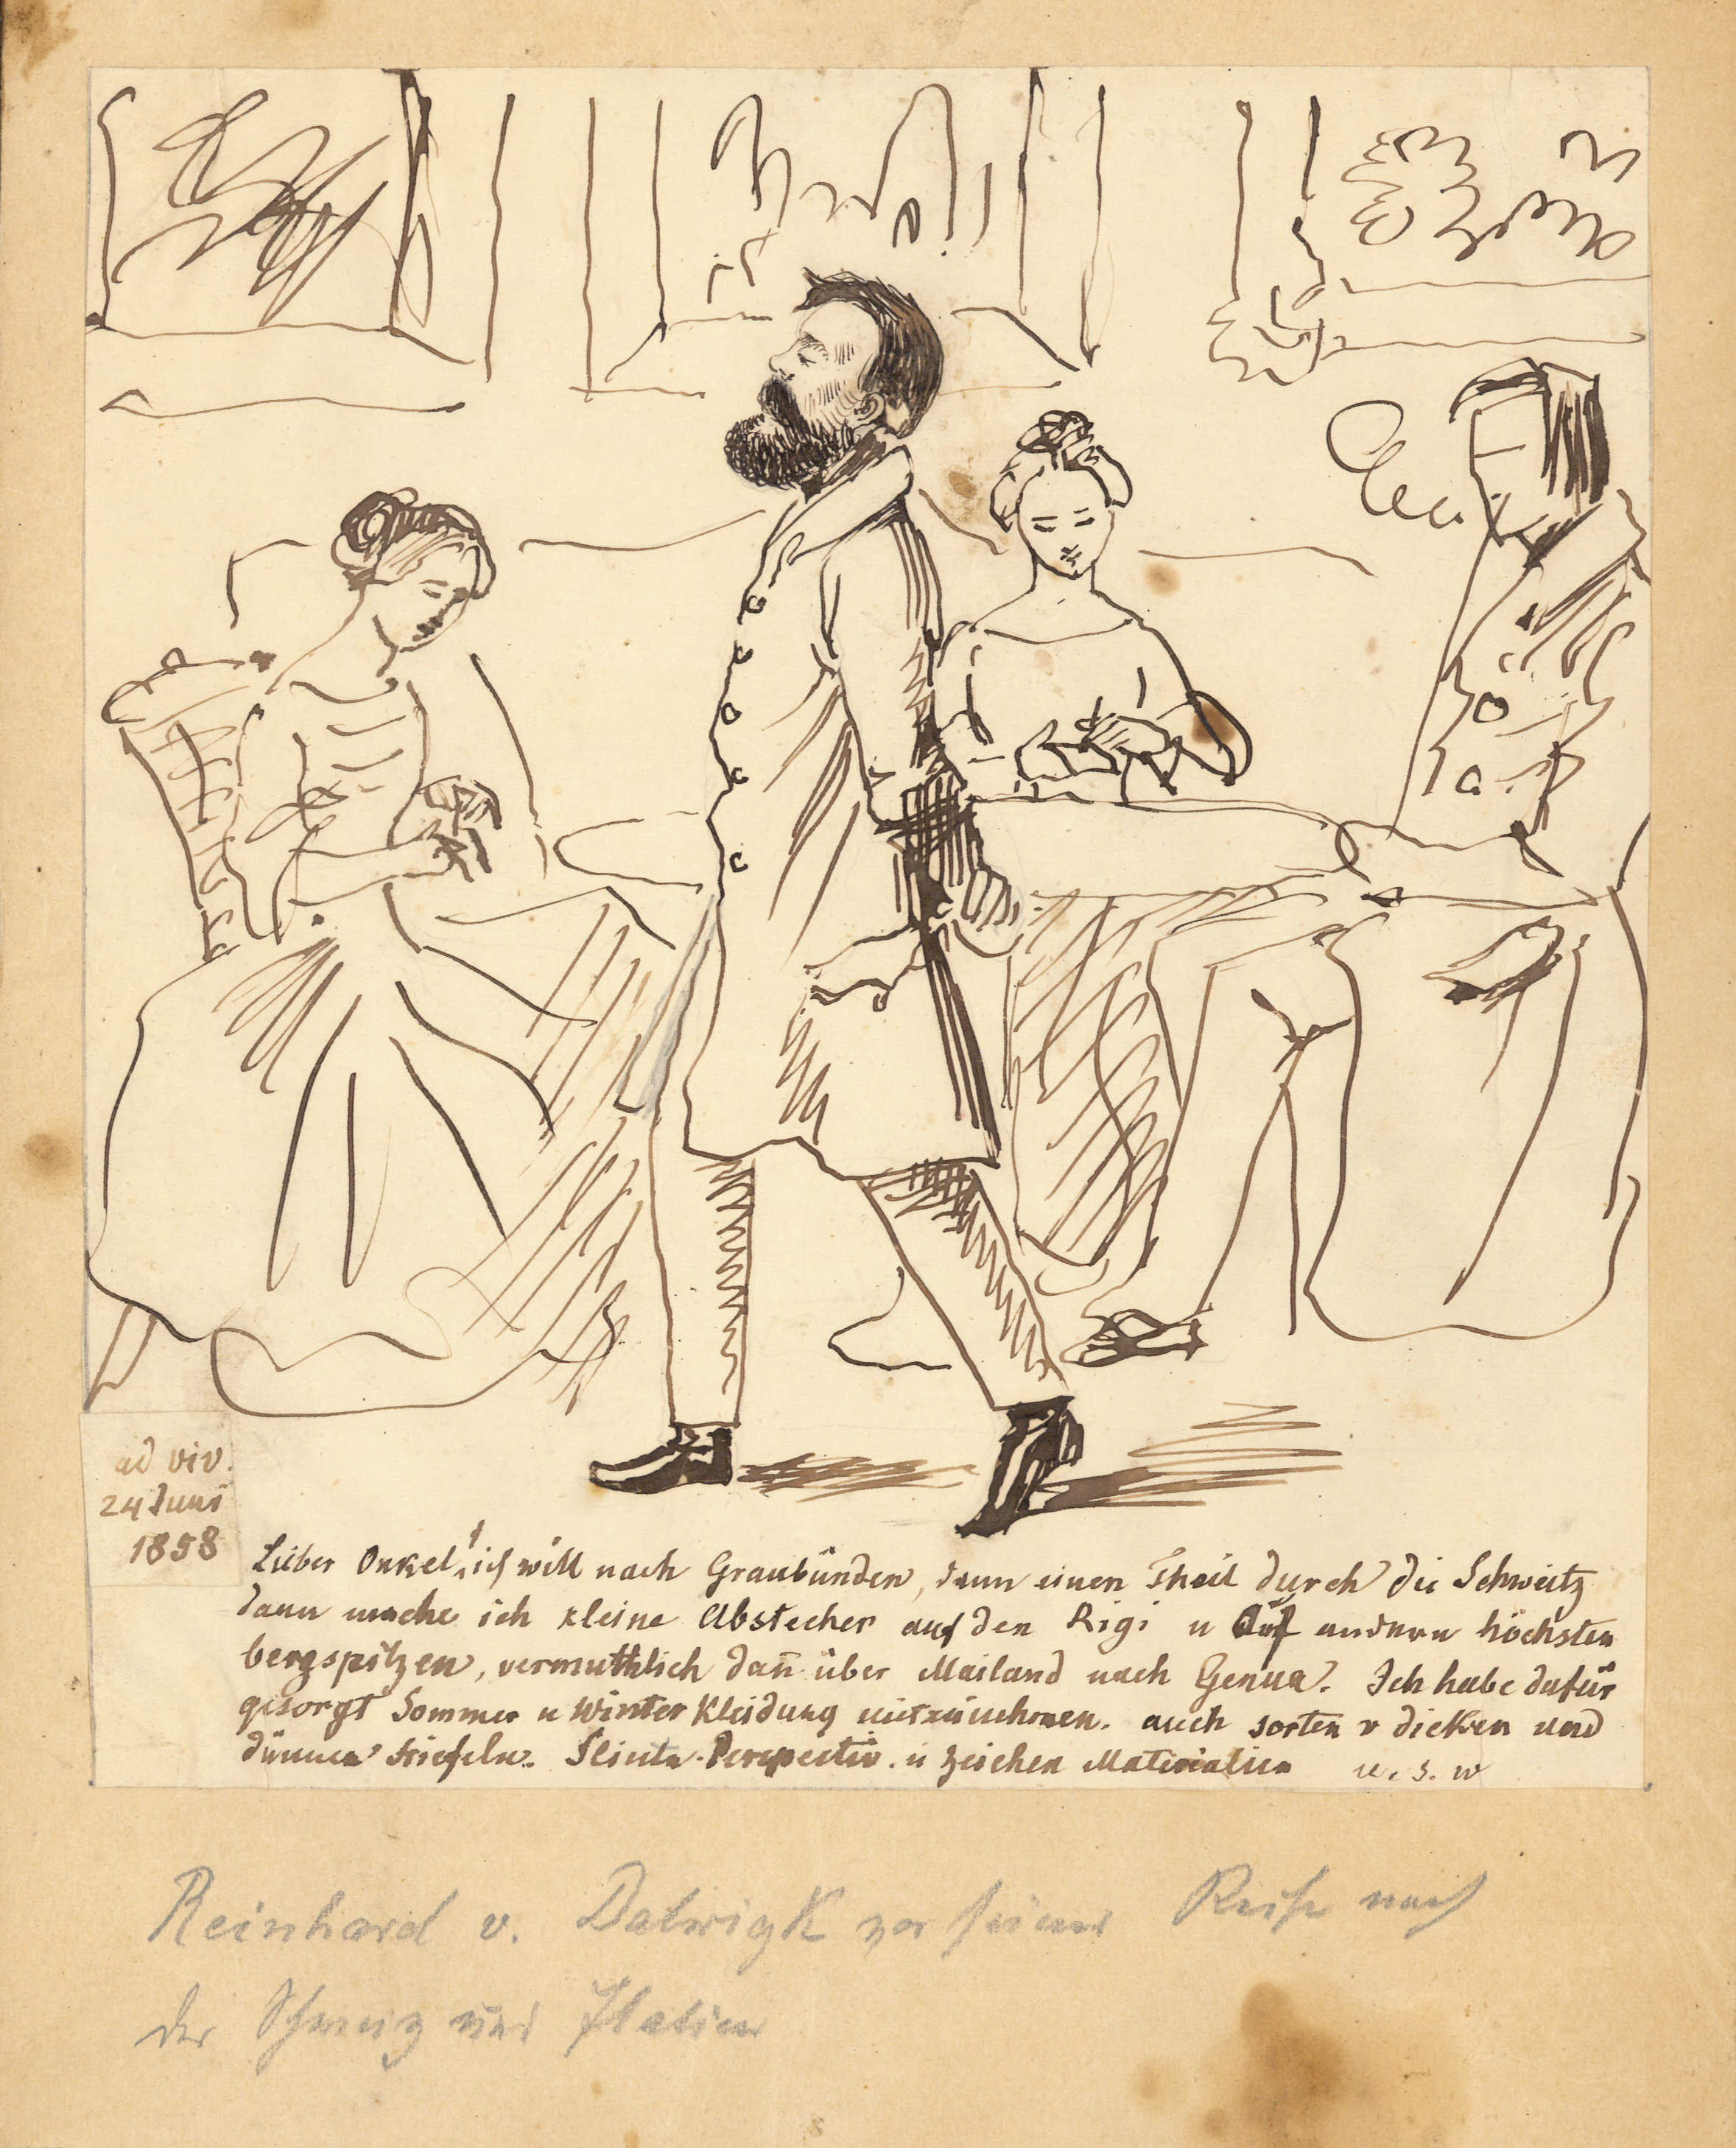 ad viv.
24 Juni
1858
Lieber Onkel! ich will nach Graubünden, dann einen Theil durch die Schweitz
dann mache ich kleine Abstecher auf den Rigi u auf andern höchsten
bergspitzen, vermuthlich dan̄ über Mailand nach Genua. Ich habe dafür
gesorgt Sommer u Winter Kleidung mitzunehmen. auch sorten v dicken und
dünnen stiefeln. Flinte. Perspectiv. u zeichen Materialien u. s. w
Reinhard v. Dalwigk vor seiner Reise nach
der Schweiz und Italien